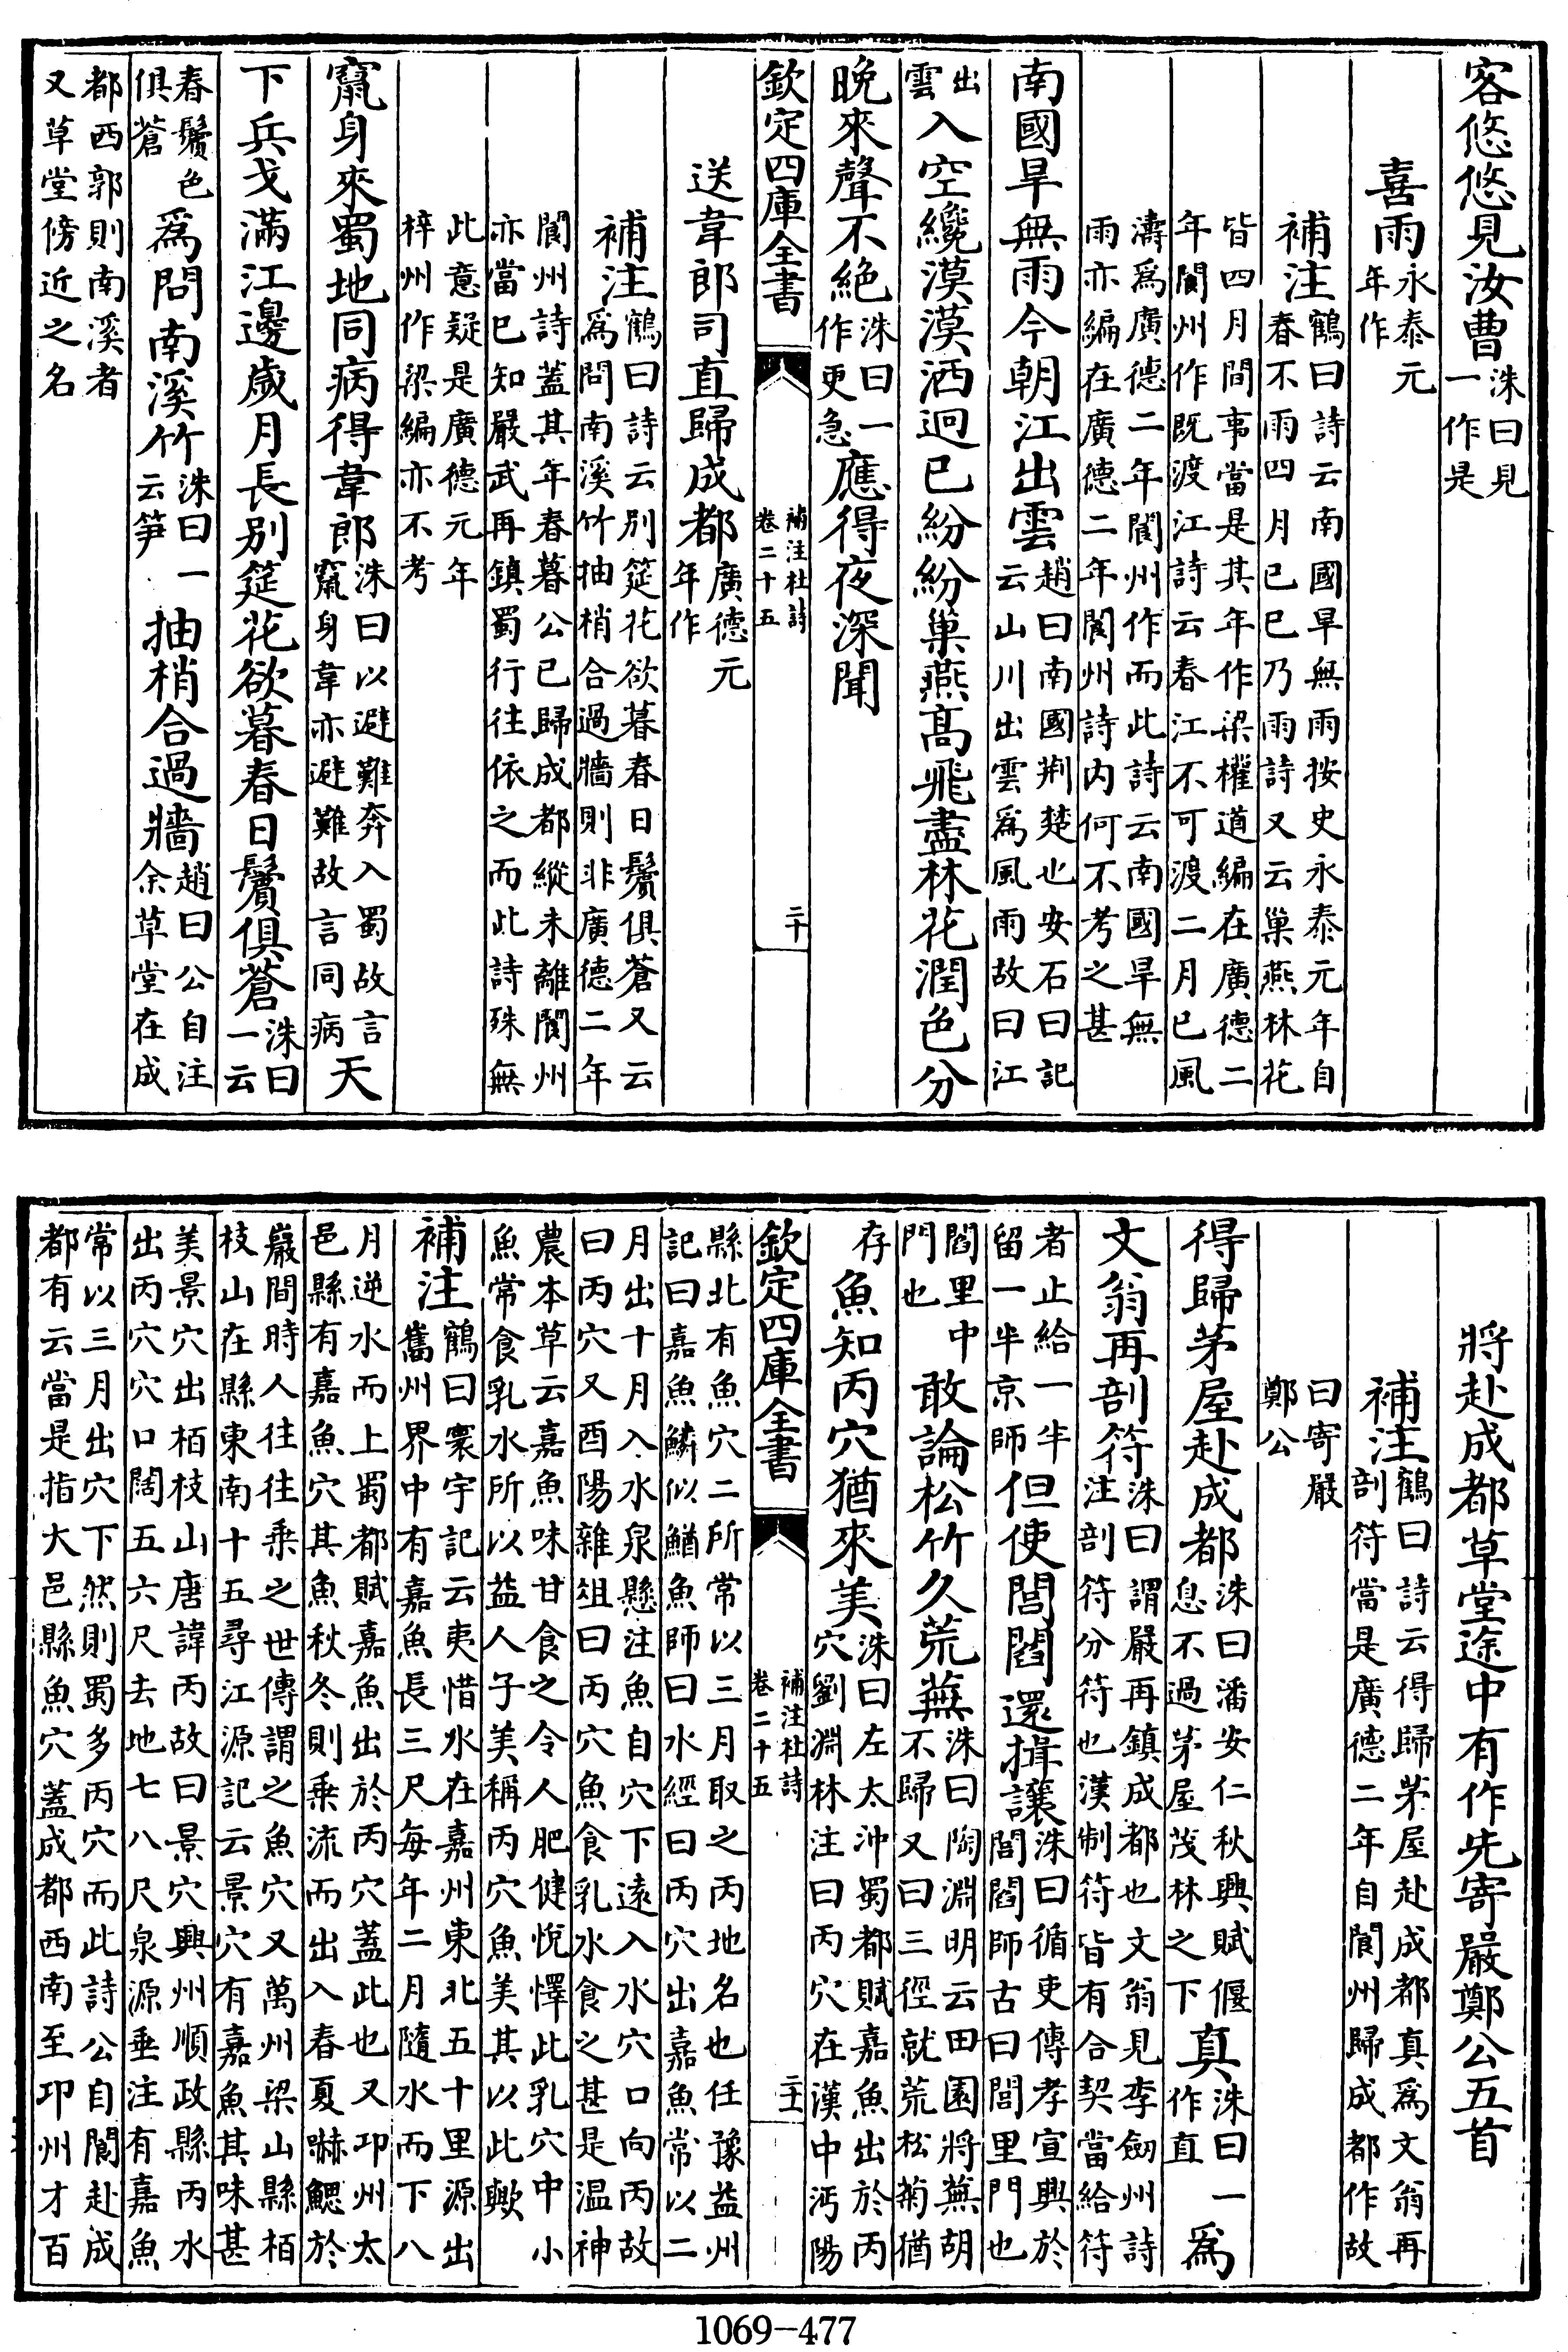 客悠悠見汝曹洙曰見一作是
喜雨永泰元年作
補注鶴曰詩云南國旱無雨按史永泰元年自春不雨四月己巳乃雨詩又云巢燕林花
皆四月間事當是其年作梁權道編在廣德二年閬州作既渡江詩云春江不可渡二月已風
濤為廣德二年閬州作而此詩云南國旱無雨亦編在廣德二年閬州詩内何不考之甚
南國旱無雨今朝江出雲趙曰南國荆楚也安石曰記云山川出雲為風雨故曰江
出雲入空纔漠漠洒迥已紛紛巢燕髙飛盡林花潤色分
晚來聲不絶洙曰一作更急應得夜深聞
欽定四庫全書 補注杜詩 卷二十五 二十
送韋郎司直歸成都廣德元年作
補注鶴曰詩云别筵花欲暮春日鬢俱蒼又云為問南溪竹抽梢合過牆則非廣德二年
閬州詩蓋其年春暮公已歸成都縱未離閬州亦當已知嚴武再鎮蜀行往依之而此詩殊無
此意疑是廣德元年梓州作梁編亦不考
竄身來蜀地同病得韋郎洙曰以避難奔入蜀故言竄身韋亦避難故言同病天
下兵戈滿江邊歲月長别筵花欲暮春日鬢俱蒼洙曰一云
春鬢色俱蒼為問南溪竹洙曰一云笋抽梢合過牆趙曰公自注余草堂在成
都西郭則南溪者又草堂傍近之名
將赴成都草堂途中有作先寄嚴鄭公五首
補注鶴曰詩云得歸茅屋赴成都真為文翁再剖符當是廣德二年自閬州歸成都作故
曰寄嚴鄭公
得歸茅屋赴成都洙曰潘安仁秋興賦偃息不過茅屋茂林之下真洙曰一作直為
文翁再剖符洙曰謂嚴再鎮成都也文翁見李劒州詩注剖符分符也漢制符皆有合契當給符
者止給一半留一半京師但使閭閻還揖讓洙曰循吏傳孝宣興於閭閻師古曰閭里門也
閻里中門也敢論松竹久荒蕪洙曰陶淵明云田園將蕪胡不歸又曰三徑就荒松菊猶
存魚知丙穴猶來美洙曰左太沖蜀都賦嘉魚出於丙穴劉淵林注曰丙穴在漢中沔陽
欽定四庫全書 補注杜詩 卷二十五 二十一
縣北有魚穴二所常以三月取之丙地名也任豫益州記曰嘉魚鱗似鰌魚師曰水經曰丙穴出嘉魚常以二
月出十月入水泉懸注魚自穴下遠入水穴口向丙故曰丙穴又酉陽雜俎曰丙穴魚食乳水食之甚是温神
農本草云嘉魚味甘食之令人肥健悅懌此乳穴中小魚常食乳水所以益人子美稱丙穴魚美其以此歟
補注鶴曰寰宇記云夷惜水在嘉州東北五十里源出巂州界中有嘉魚長三尺每年二月隨水而下八
月逆水而上蜀都賦嘉魚出於丙穴蓋此也又卭州太邑縣有嘉魚穴其魚秋冬則乗流而出入春夏嚇鰓於
巖間時人往往乗之世傳謂之魚穴又萬州梁山縣栢枝山在縣東南十五尋江源記云景穴有嘉魚其味甚
美景穴出栢枝山唐諱丙故曰景穴興州順政縣丙水出丙穴穴口闊五六尺去地七八尺泉源垂注有嘉魚
常以三月出穴下然則蜀多丙穴而此詩公自閬赴成都有云當是指大邑縣魚穴蓋成都西南至卭州才百
1069-477